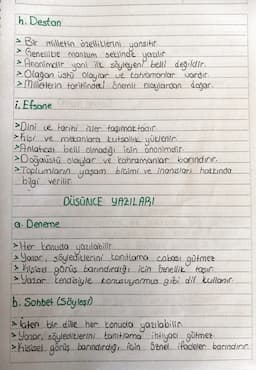 h. Destan
> Bir milletin özelliklerini yansıtır.
> Genellikle manzum şekilde yazılır.
> Anonimdir yani ilk söyleyeni belli değildir.
> Olağan üstü olaylar ve kahramanlar vardır.
> Milletlerin tarihindeki önemli olaylardan doğar.
i. Efsane
> Dini ve tarihi izler taşımaktadır.
> Kişi ve mekanlara kutsallık yüklenir.
> Anlatıcısı belli olmadığı için anonimdir.
> Doğaüstü olaylar ve kahramanlar barındırır.
> Toplumların yaşam biçimi ve inanışları hakkında
bilgi verilir.
DÜŞÜNCE YAZILARI
a. Deneme
> Her konuda yazılabilir.
> Yazar, söylediklerini kanıtlama çabası gütmez.
> Kişisel görüş barındırdığı için öznellik taşır.
> Yazar kendisiyle konuşuyormuş gibi dil kullanır.
b. Sohbet (Söyleşi)
> İçten bir dille her konuda yazılabilir.
> Yazar, söylediklerini kanıtlama ihtiyacı gütmez.
> Kişisel görüş barındırdığı için öznel ifadeler barındırır.